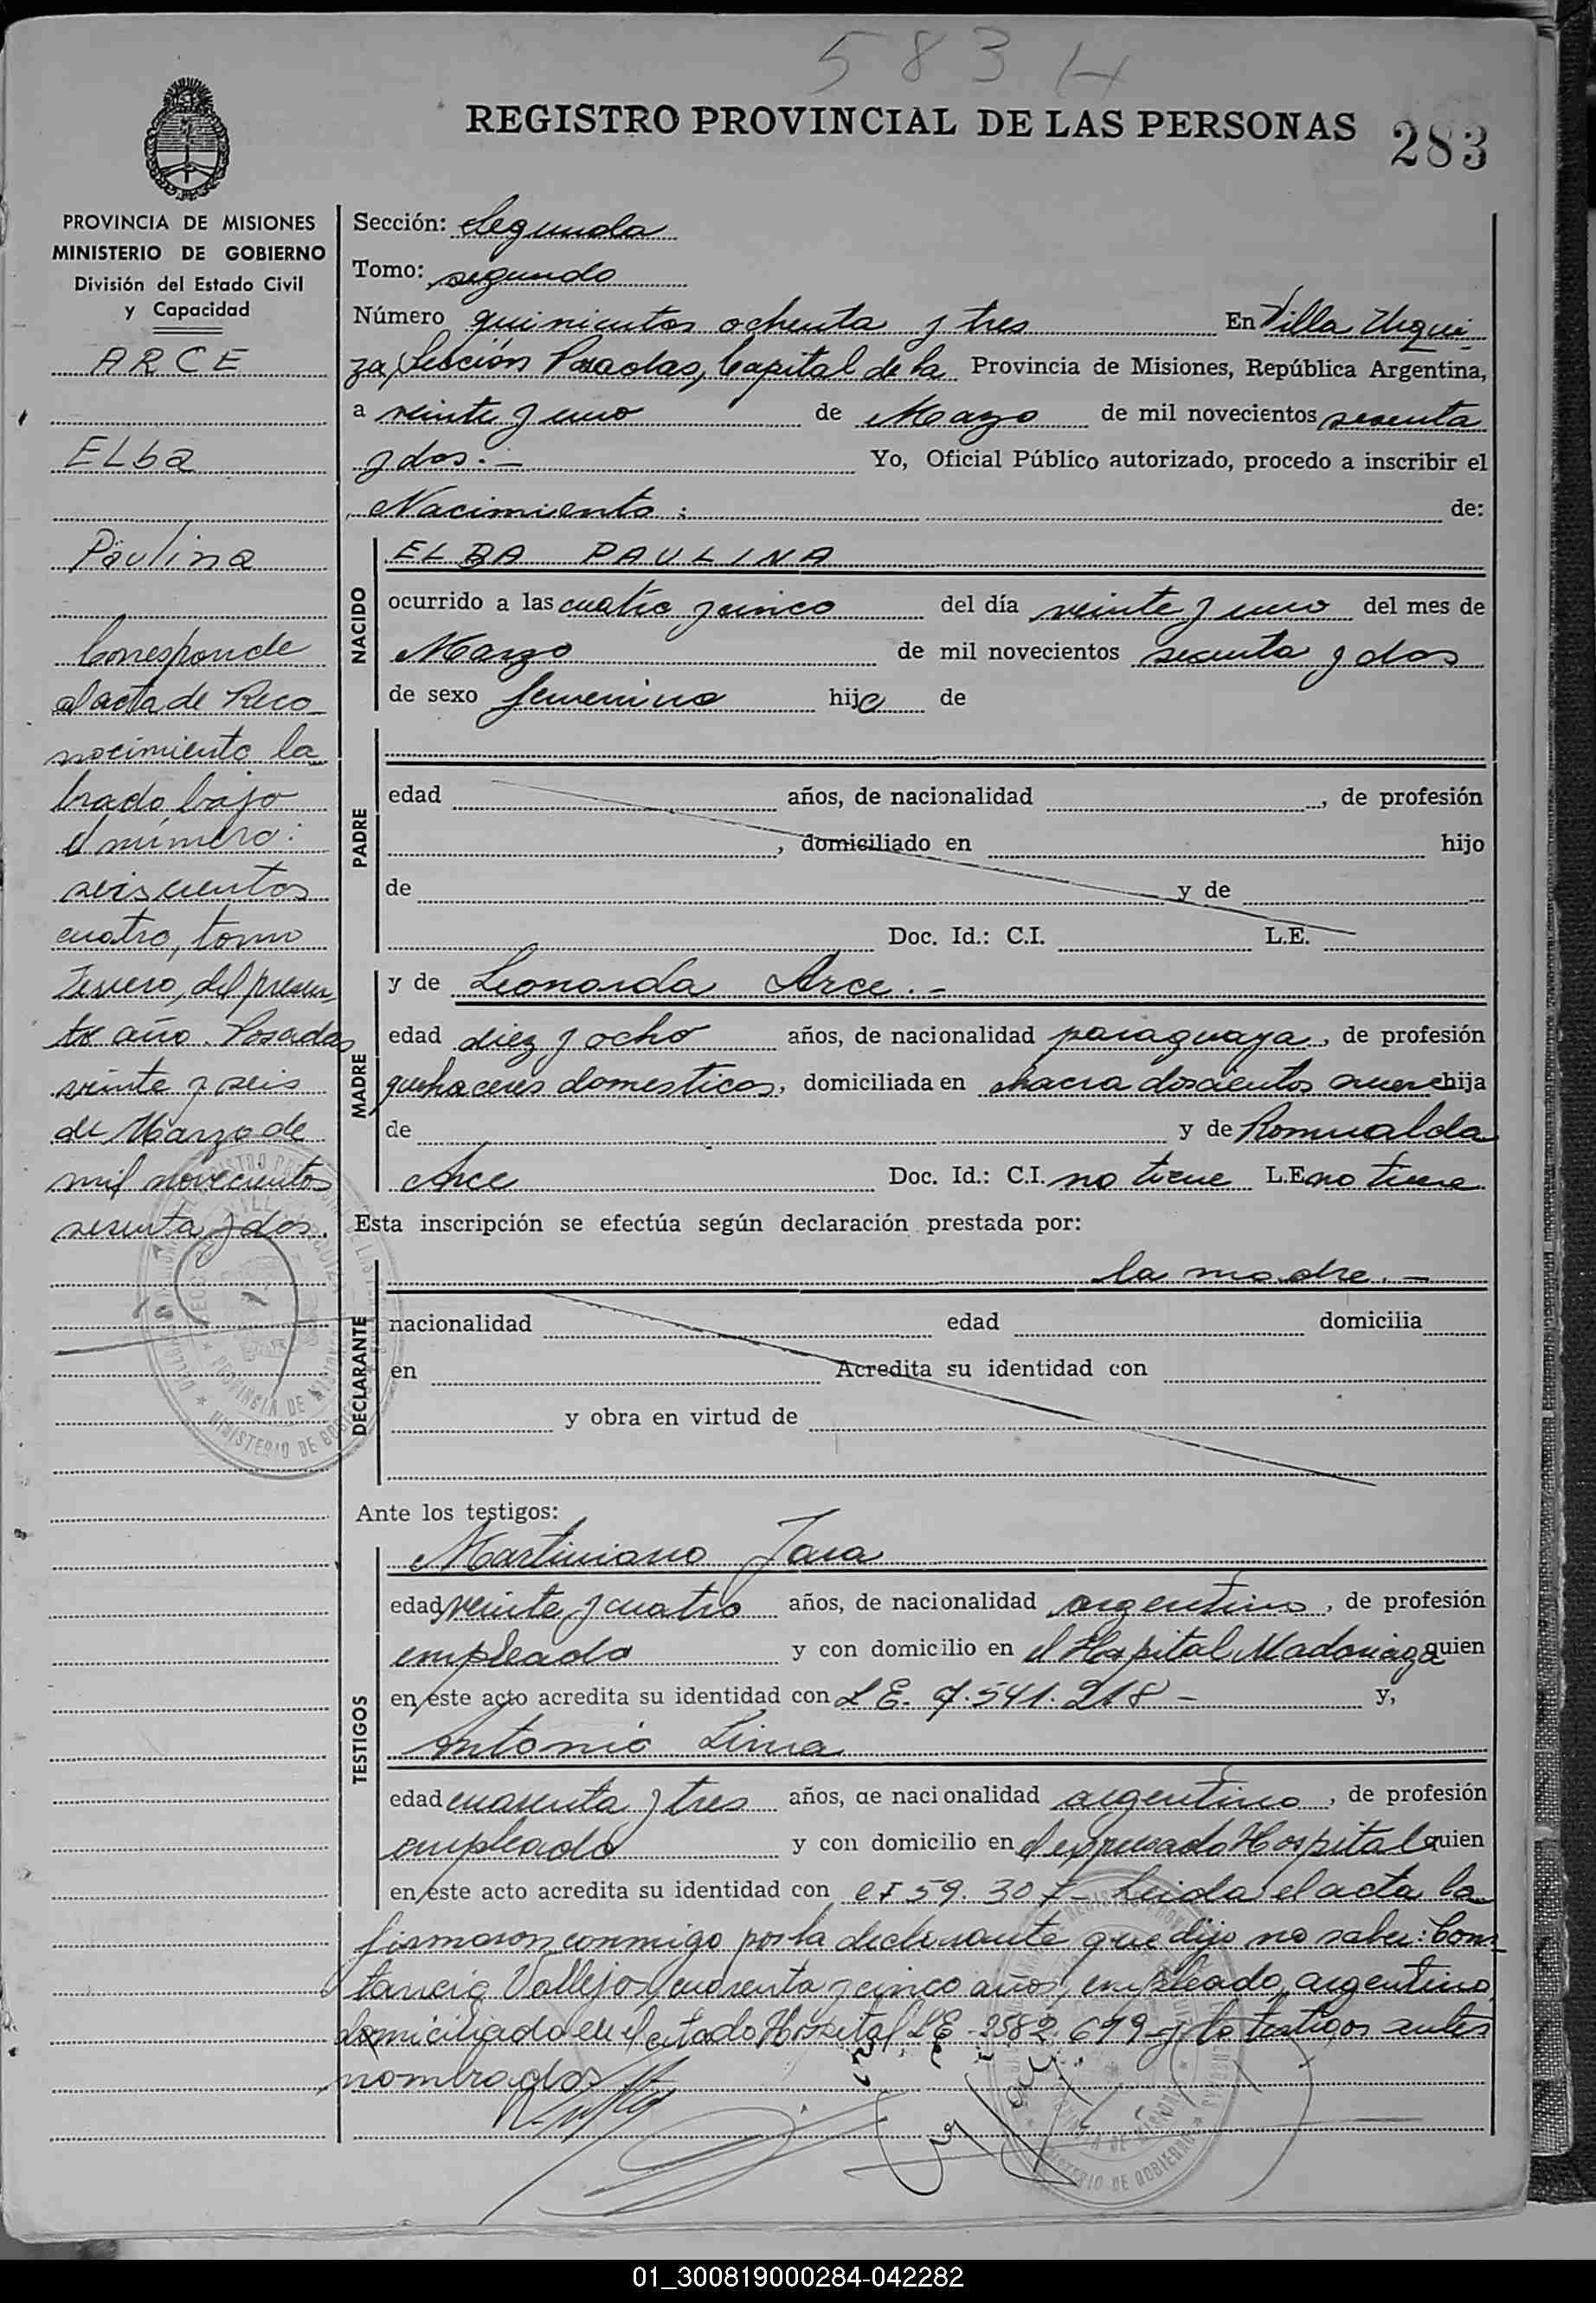 583 H
REGISTRO PROVINCIAL DE LAS PERSONAS
283
PROVINCIA DE MISIONES
MINISTERIO DE GOBIERNO
División del Estado Civil
y Capacidad
ARCE
ELba
Paulina
Corresponde
al acta de Reco
nocimiento la
brado bajo
el número:
seiscientos
cuatro, tomo
Tercero, del presen
te año. Posadas
veinte y seis
de Marzo de
mil novecientos
sesenta y dos.
Sección: Segunda
Tomo: segundo
Número quinientos ochenta y tres En Villa Urqui
za, Sección Posadas, Capital de la Provincia de Misiones, República Argentina,
a veinte y uno de Mazo de mil novecientos sesenta
y dos.- Yo, Oficial Público autorizado, procedo a inscribir el
Nacimiento: de:
NACIDO
ELBA PAULINA
ocurrido a las cuatro y cinco del día veinte y uno del mes de
Marzo de mil novecientos sesenta y dos
de sexo femenino hija de
PADRE
edad años, de nacionalidad , de profesión
, domiciliado en hijo
de y de
Doc. Id.: C.I. L.E.
MADRE
y de Leonarda Arce.-
edad diez y ocho años, de nacionalidad paraguaya, de profesión
quehaceres domesticos, domiciliada en chacra doscientos hija
de y de Romualda
Arce Doc. Id.: C.I. no tiene L.E. no tiene
Esta inscripción se efectúa según declaración prestada por:
DECLARANTE
la madre.-
nacionalidad edad domicilia
en Acredita su identidad con
y obra en virtud de
Ante los testigos:
TESTIGOS
Martiniano Jara
edad veinte y cuatro años, de nacionalidad argentino, de profesión
empleado y con domicilio en el Hospital Madariaga quien
en este acto acredita su identidad con L E. 7.541.218- y,
Antonio Lima
edad cuarenta y tres años, de nacionalidad argentino, de profesión
empleado y con domicilio en el expresado Hospital quien
en este acto acredita su identidad con CI 59.307- Leida el acta la
firmaron conmigo por la declarante que dijo no saber: Cons
tancio Vallejos, cuarenta y cinco años, empleado, argentino,
domiciliado en el citado Hospital, LE-2582.679 y lo testigos antes
nombrados
01_300819000284-042282